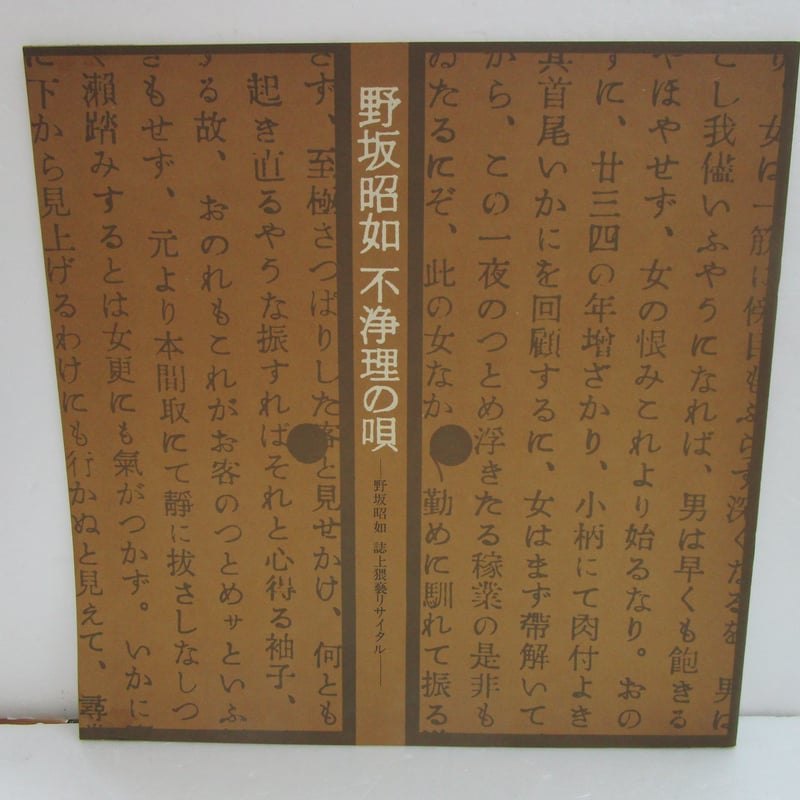 り、女は一筋に傍目もふらず深くなるを 男は
とし我儘いふやうになれば、男は早くも飽きる
やほやせず、女の恨みこれより始るなり。おの
ずに、廿三四の年増ざかり、小柄にて肉付よき
其首尾いかにを回顧するに、女はまず帶解いて
から、この一夜のつとめ浮きたる稼業の是非も
ゐたるにぞ、此の女なか〱勤めに馴れて振る
野坂昭如 不浄理の唄
―野坂昭如 誌上猥褻リサイタル―
さず、至極さつぱりした客と見せかけ、何とも
起き直るやうな振すればそれと心得る袖子、
する故、おのれもこれがお客のつとめサといふ
きもせず、元より本間取にて靜に拔さしなしつ
く瀬踏みするとは女更にも氣がつかず。いかに
に下から見上げるわけにも行かぬと見えて、尋